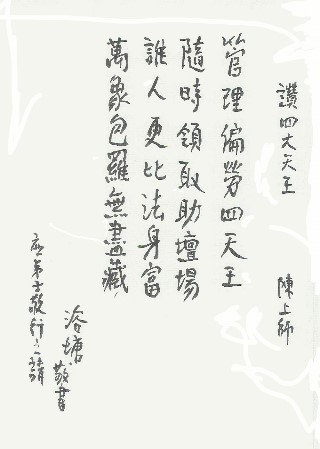 讚四大天王
陳上師
管理偏勞四天王
隨時領取助壇場
誰人更比法身富
萬象包羅無盡藏
浴塘敬書
應弟子敬行之請